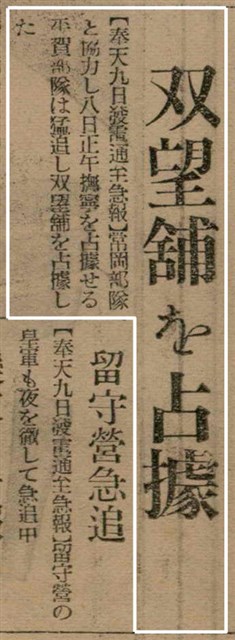 双望舖を占據
【奉天九日發電通至急報】常岡部隊
と協力し八日正午撫寧を占據せる
平賀部隊は猛追し双望舖を占據し
た
留守營急追
【奉天九日發電通至急報】留守營の
皇軍も夜を徹して急追中